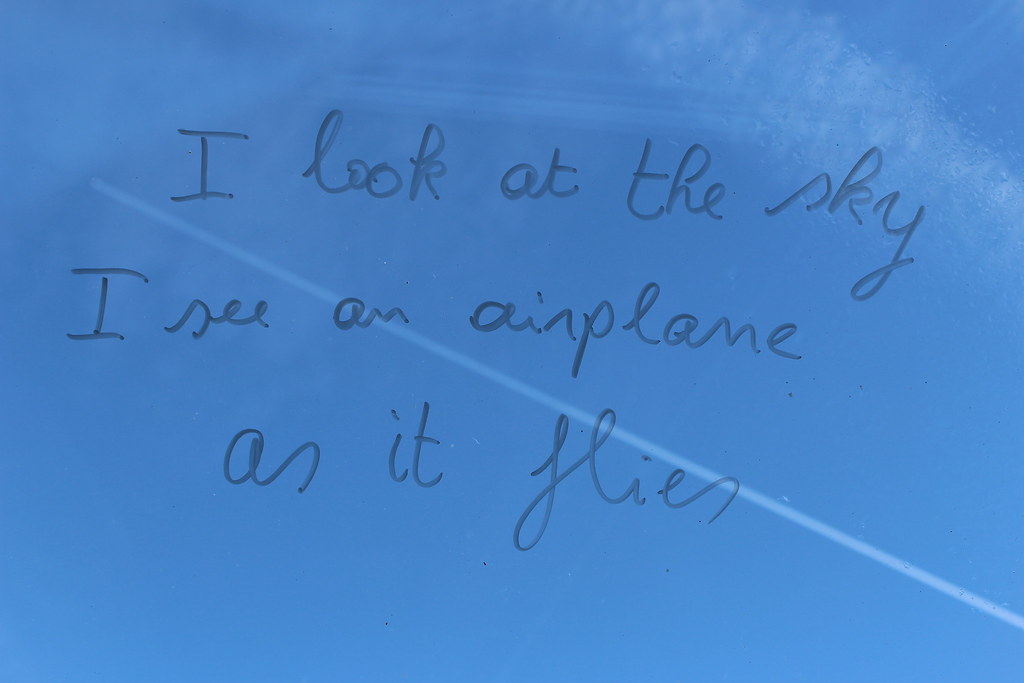 I look at the sky
I see an airplane
as it flies